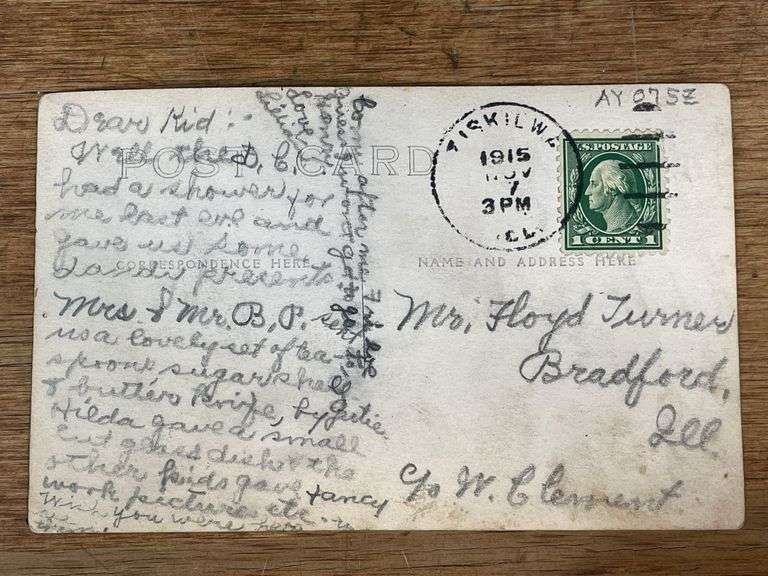 AY 075Z
POST CARD
TISKILWA
1915
NOV
7
3 PM
ILL.
U.S. POSTAGE
1 CENT 1
CORRESPONDENCE HERE
NAME AND ADDRESS HERE
Dear Kid:
Well the D. C.
had a shower for
me last eve and
gave us some
dandy presents
Mrs & Mr. B. P.
us a lovely set of tea
spoons sugar shell
& butter knife,
Hilda gave a small
cut glass dish & the
other kids gave fancy
work pictures etc.
Wish you were here
Mr. Floyd Turner
Bradford,
Ill
c/o W. Clement
to my after me Fri eve
Love